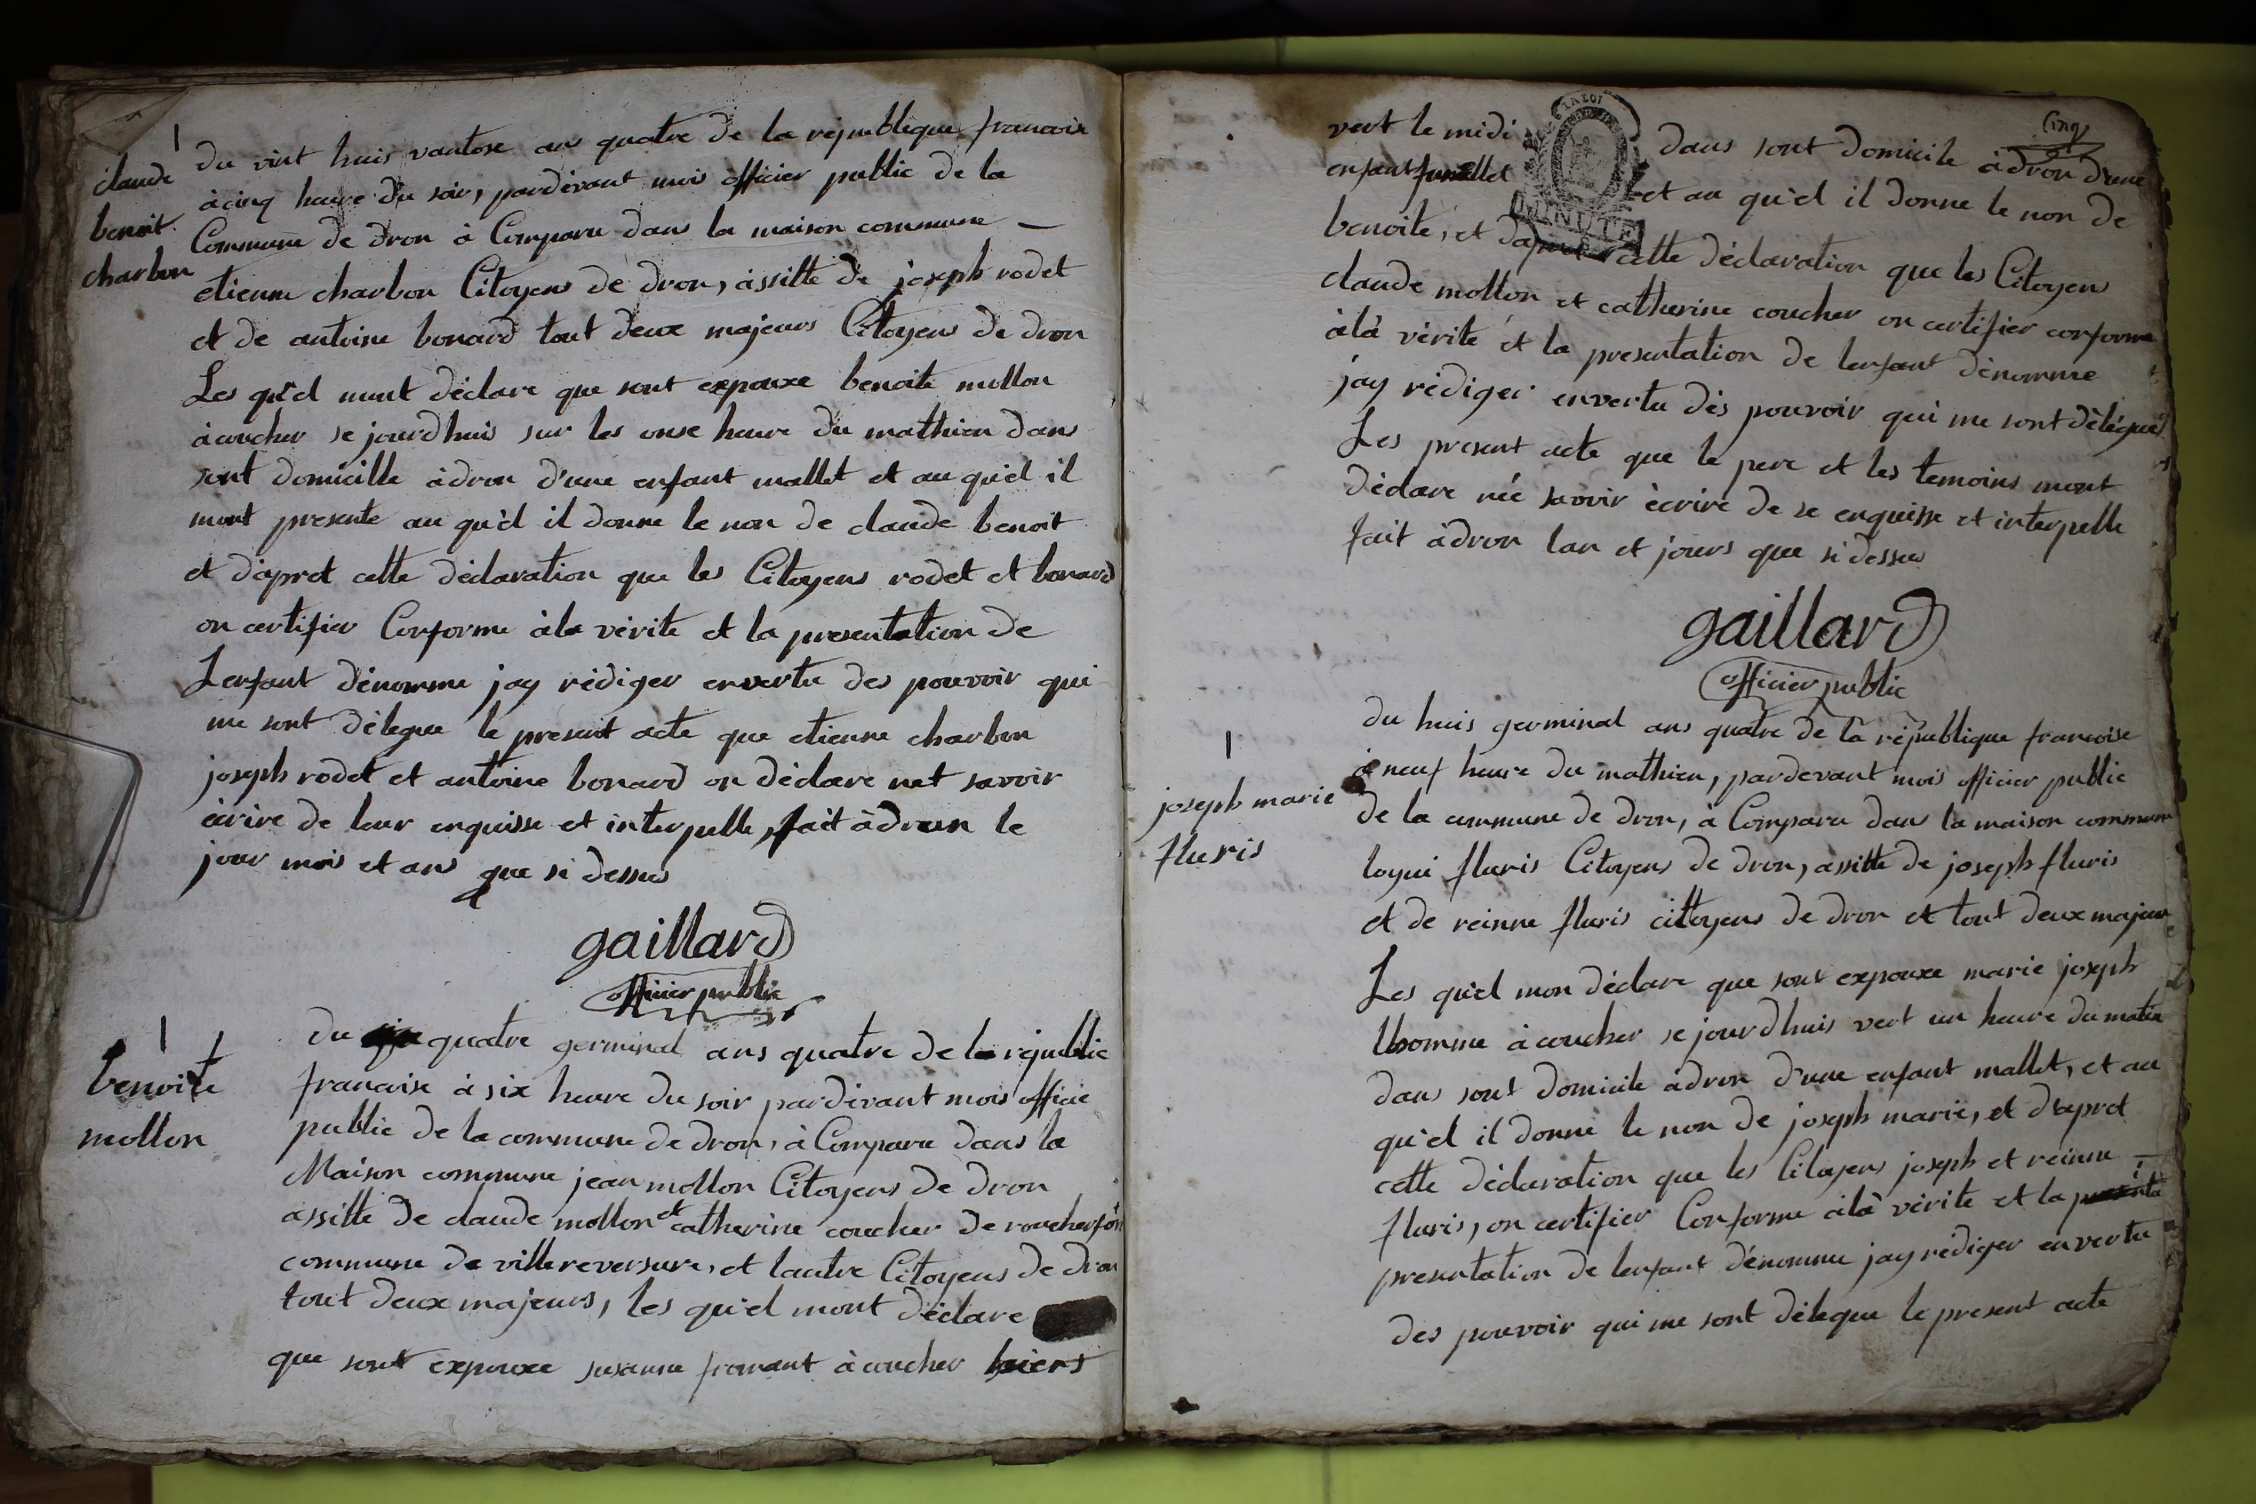 1
claude
benoit
charbon
du vint huis vantose ans quatre de la republique francoise
à cinq heure du soir, pardevant mois officier public de la
Commune de dron à Comparu dans la maison commune
etienne charbon Citoyens de dron, assitte de joseph rodet
et de antoine bonard tout deux majeurs Citoyens de dron
Les qu'el mont declare que sont expouxe benoite mollon
à coucher se jourdhuis sur les onse heure du mathien dans
sont domicille à dron d'une enfant mallet et au qu'el il
mont presente au qu'el il donne le non de claude benoit
et dapret cette déclaration que les Citoyens rodet et bonard
on certifier Conforme à la vérite et la presentation de
Lenfant dénomme jay rédiger envertu des pouvoir qui
me sont délegue le present acte que etienne charbon
joseph rodet et antoine bonard on déclare net savoir
écrire de leur enquisse et interpelle, fait à dron le
jour mois et ans que si dessus
gaillard
officier public
1
benoite
mollon
du quatre germinal ans quatre de la républic
francoise à six heure du soir pardevant mois officie
public de la commune de dron, à Comparu dans la
Maison commune jean mollon Citoyens de dron
assitte de claude mollon et catherine coucher de rocherfon
commune de villereversure, et lautre Citoyens de dron
tout deux majeurs, les qu'el mont déclare
que sont expouxe susanne fromant à coucher hiers
cinq
vert le midi dans sont domicile à dron d'une
enfant funellet et au qu'el il donne le non de
MINUTE
benoite, et dapret cette déclaration que les Citoyens
claude mollon et catherine coucher on certifier conforme
à la vérite et la presentation de lenfant dénomme
jay rédiger envertu dés pouvoir qui me sont délégues
Les present acte que le pere et les temoins mont
déclare née savoir écrire de se enquisse et interpelle
fait à dron lan et jours que si dessus
gaillard
officier public
1
joseph marie
fluris
du huis germinal ans quatre de la république francoise
à neuf heure du mathien, pardevant mois officier public
de la commune de dron, à Comparu dans la maison commune
loyui fluris Citoyens de dron, assitte de joseph fluris
et de reinne fluris citoyens de dron et tout deux majeur
Les qu'el mon déclare que sont expouxe marie joseph
lhomme à coucher se jourdhuis vert un heure du matin
dans sont domicile à dron d'une enfant mallet, et au
qu'el il donne le non de joseph marie, et dapret
cette déclaration que les Citoyens joseph et reinne
fluris, on certifier Conforme à là vérite et la
presentation de lenfant dénomme jay rédiger envertu
des pouvoir qui me sont délegue le present acte